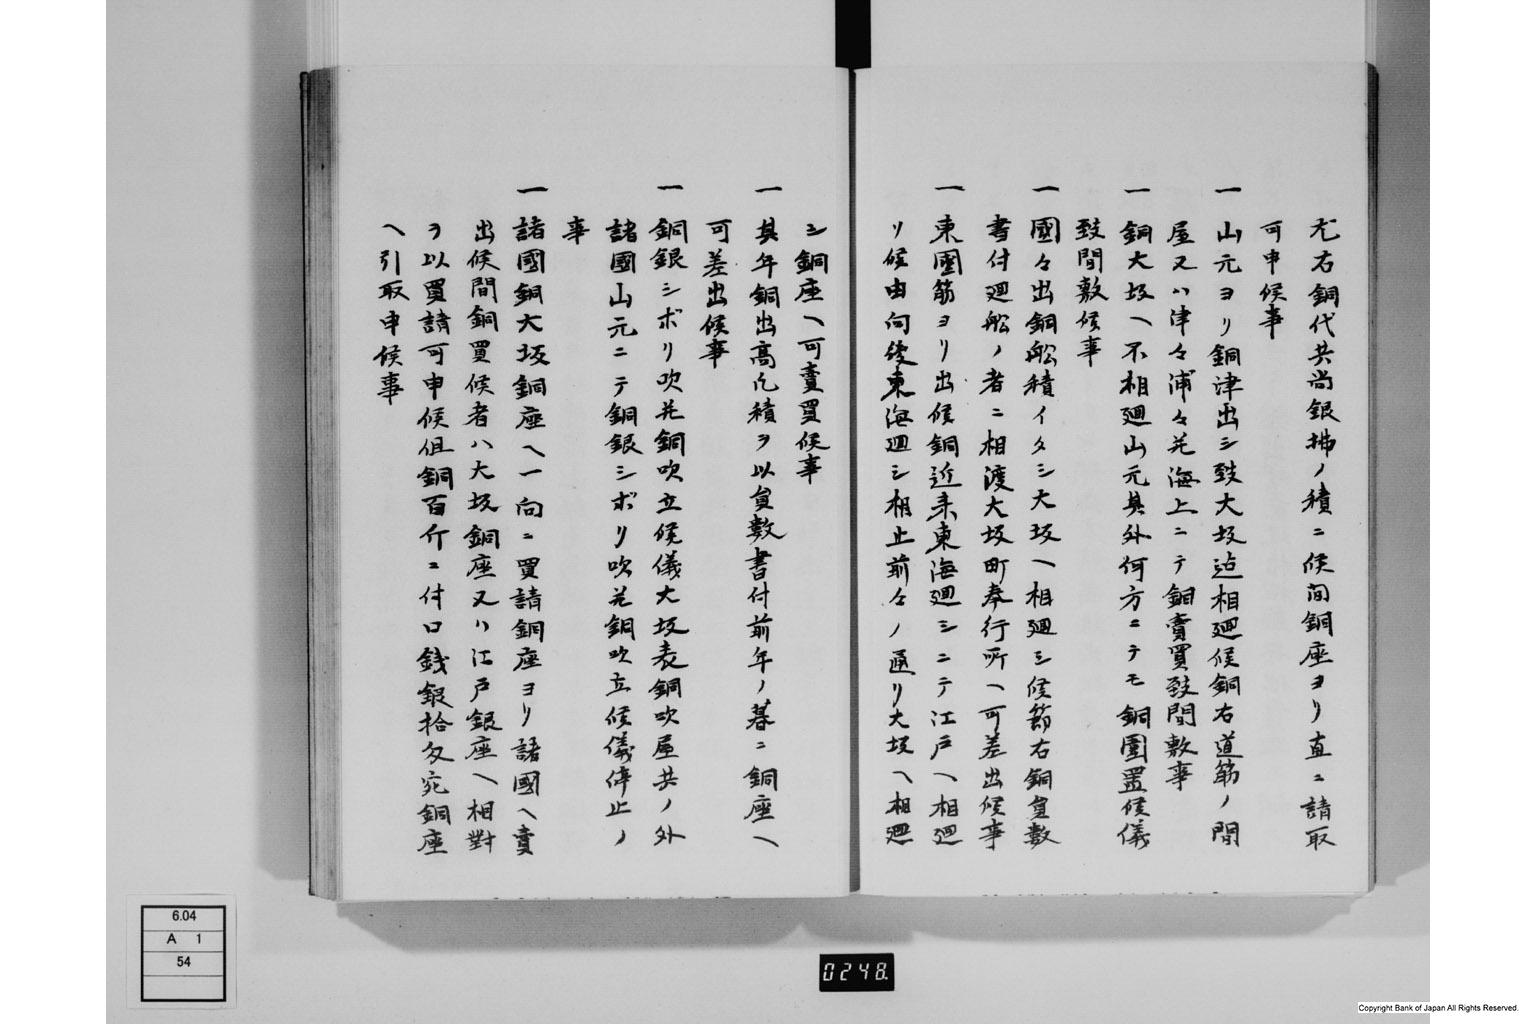 尤右銅代共尚銀拂ノ積ニ候間銅座ヨリ直ニ請取
可申候事
一 山元ヨリ銅津出シ致大坂迠相廻候銅右道筋ノ間
屋又ハ津々浦々并海上ニテ銅賣買致間敷事
一 銅大坂ヘ不相廻山元其外何方ニテモ銅圍置候儀
致間敷候事
一 國々出銅舩積イタシ大坂ヘ相廻シ候節右銅員數
書付廻舩ノ者ニ相渡大坂町奉行所ヘ可差出候事
一 東國筋ヨリ出候銅近来東海廻シニテ江戸ヘ相廻
リ候由向後東海廻シ相止前々ノ通リ大坂ヘ相廻
シ銅座ヘ可賣買候事
一 其年銅出高凢積ヲ以員數書付前年ノ暮ニ銅座ヘ
可差出候事
一 銅銀シボリ吹并銅吹立候儀大坂表銅吹屋共ノ外
諸國山元ニテ銅銀シボリ吹并銅吹立候儀停止ノ
事
一 諸國銅大坂銅座ヘ一向ニ買請銅座ヨリ諸國ヘ賣
出候間銅買候者ハ大坂銅座又ハ江戸銀座ヘ相對
ヲ以買請可申候但銅百斤ニ付口錢銀拾匁宛銅座
ヘ引取申候事
6.04
A 1
54
0248.
Copyright Bank of Japan All Rights Reserved.